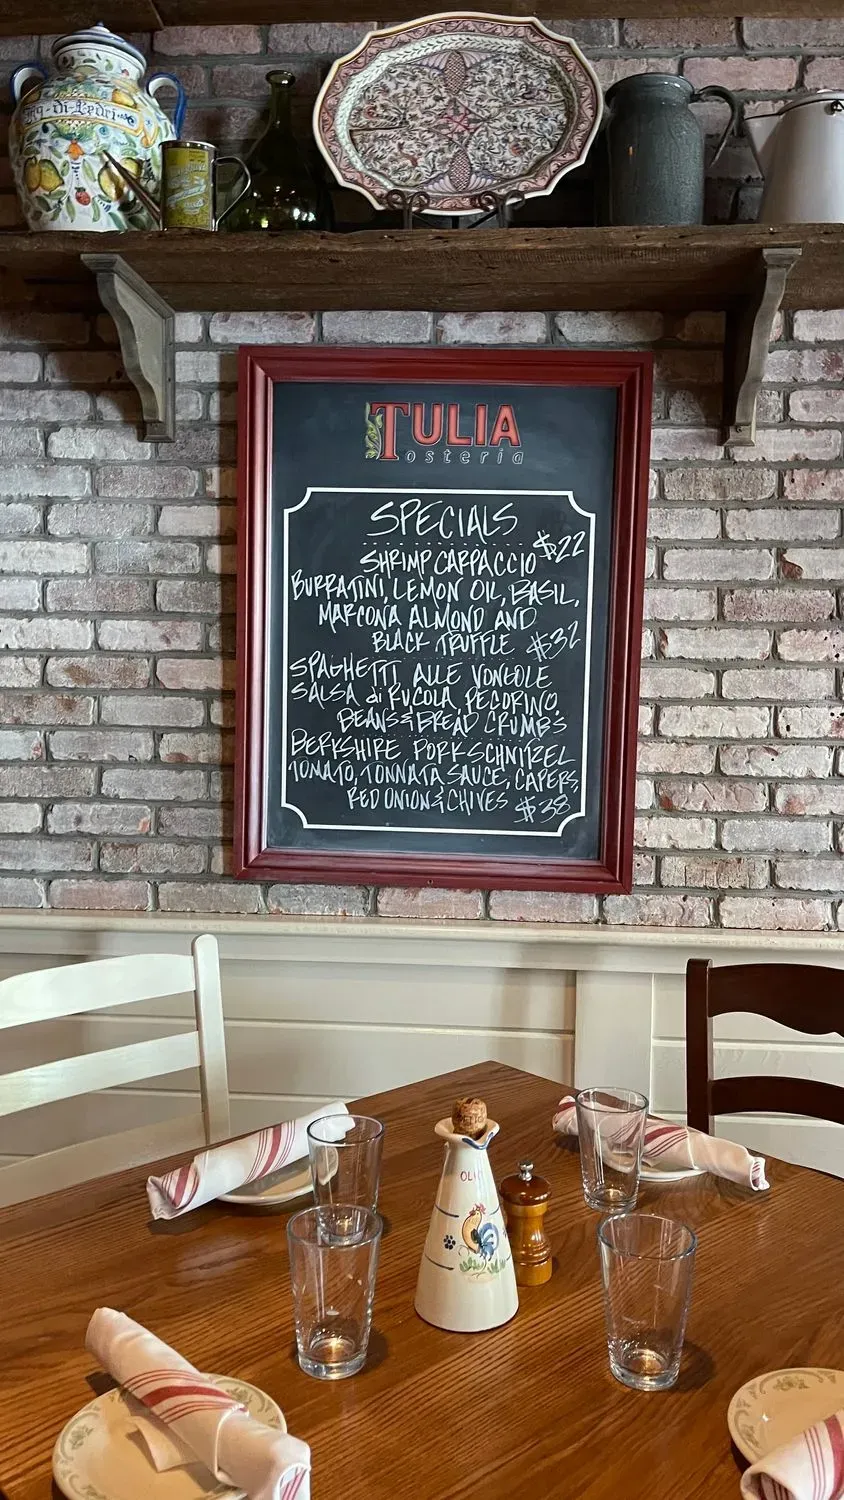 TULIA
osteria
SPECIALS
SHRIMP CARPACCIO $22
BURRATINI, LEMON OIL, BASIL,
MARCONA ALMOND AND
BLACK TRUFFLE $32
SPAGHETTI ALLE VONGOLE
SALSA di RUCOLA, PECORINO,
BEANS & BREAD CRUMBS
BERKSHIRE PORK SCHNITZEL
TOMATO, TONNATA SAUCE, CAPERS,
RED ONION & CHIVES $38